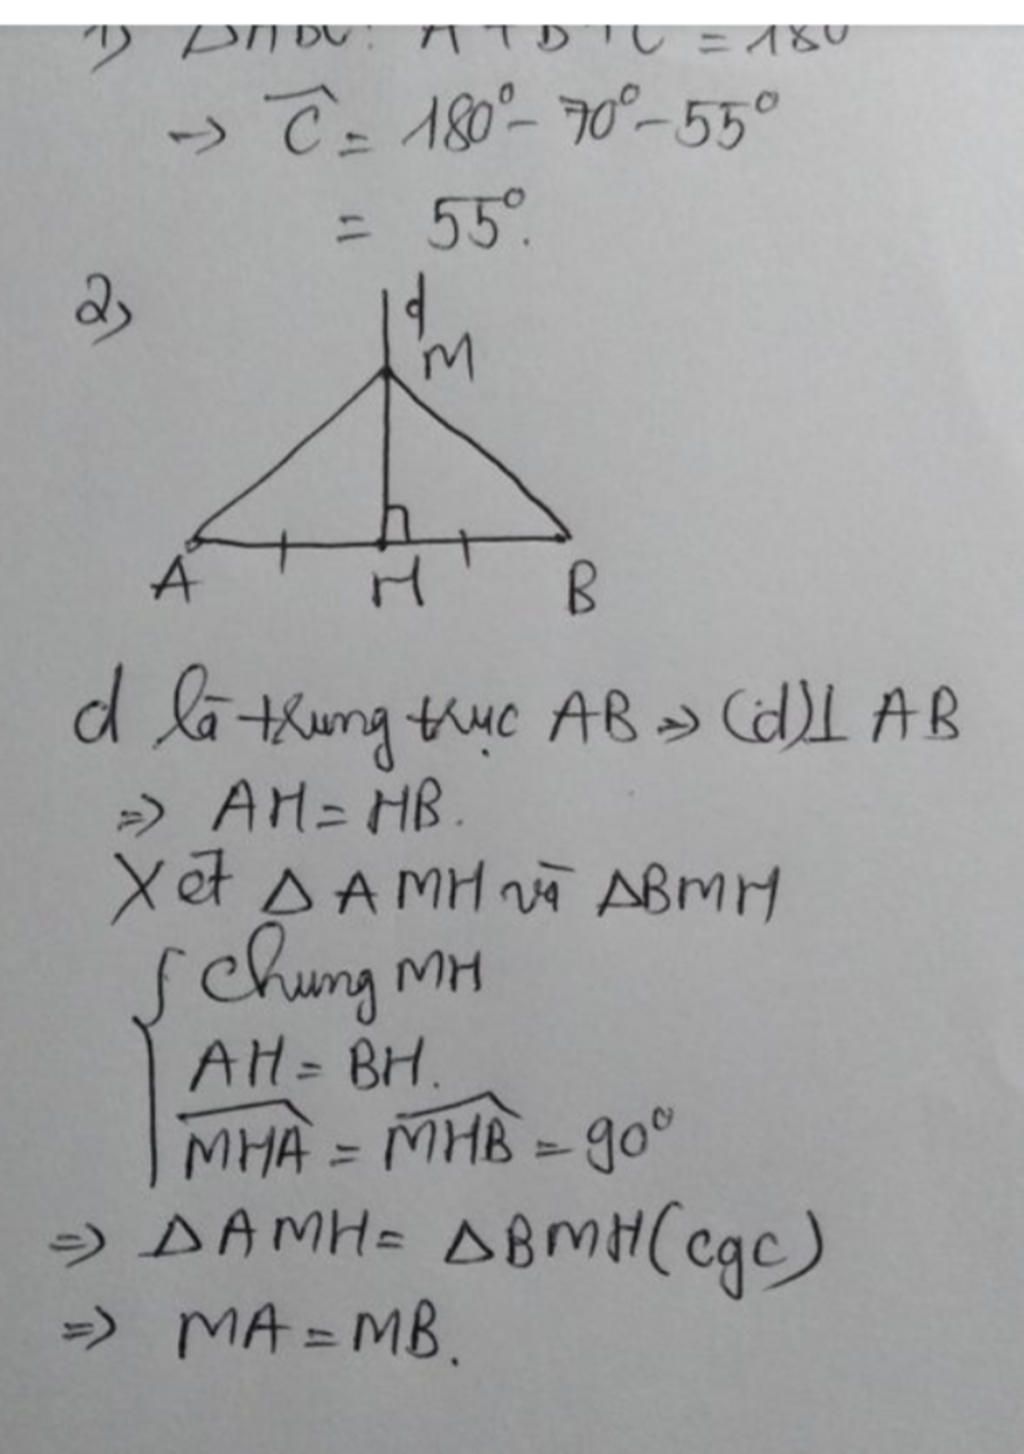 1) ΔABC: A + B + C = 180
→ Ĉ = 180° - 70° - 55°
= 55°.
2)
d
M
A H B
d là trung trực AB => (d) ⊥ AB
=> AH = HB.
Xét Δ AMH và ΔBMH
{ Chung MH
AH = BH.
MHA = MHB = 90°
=> ΔAMH = ΔBMH (cgc)
=> MA = MB.